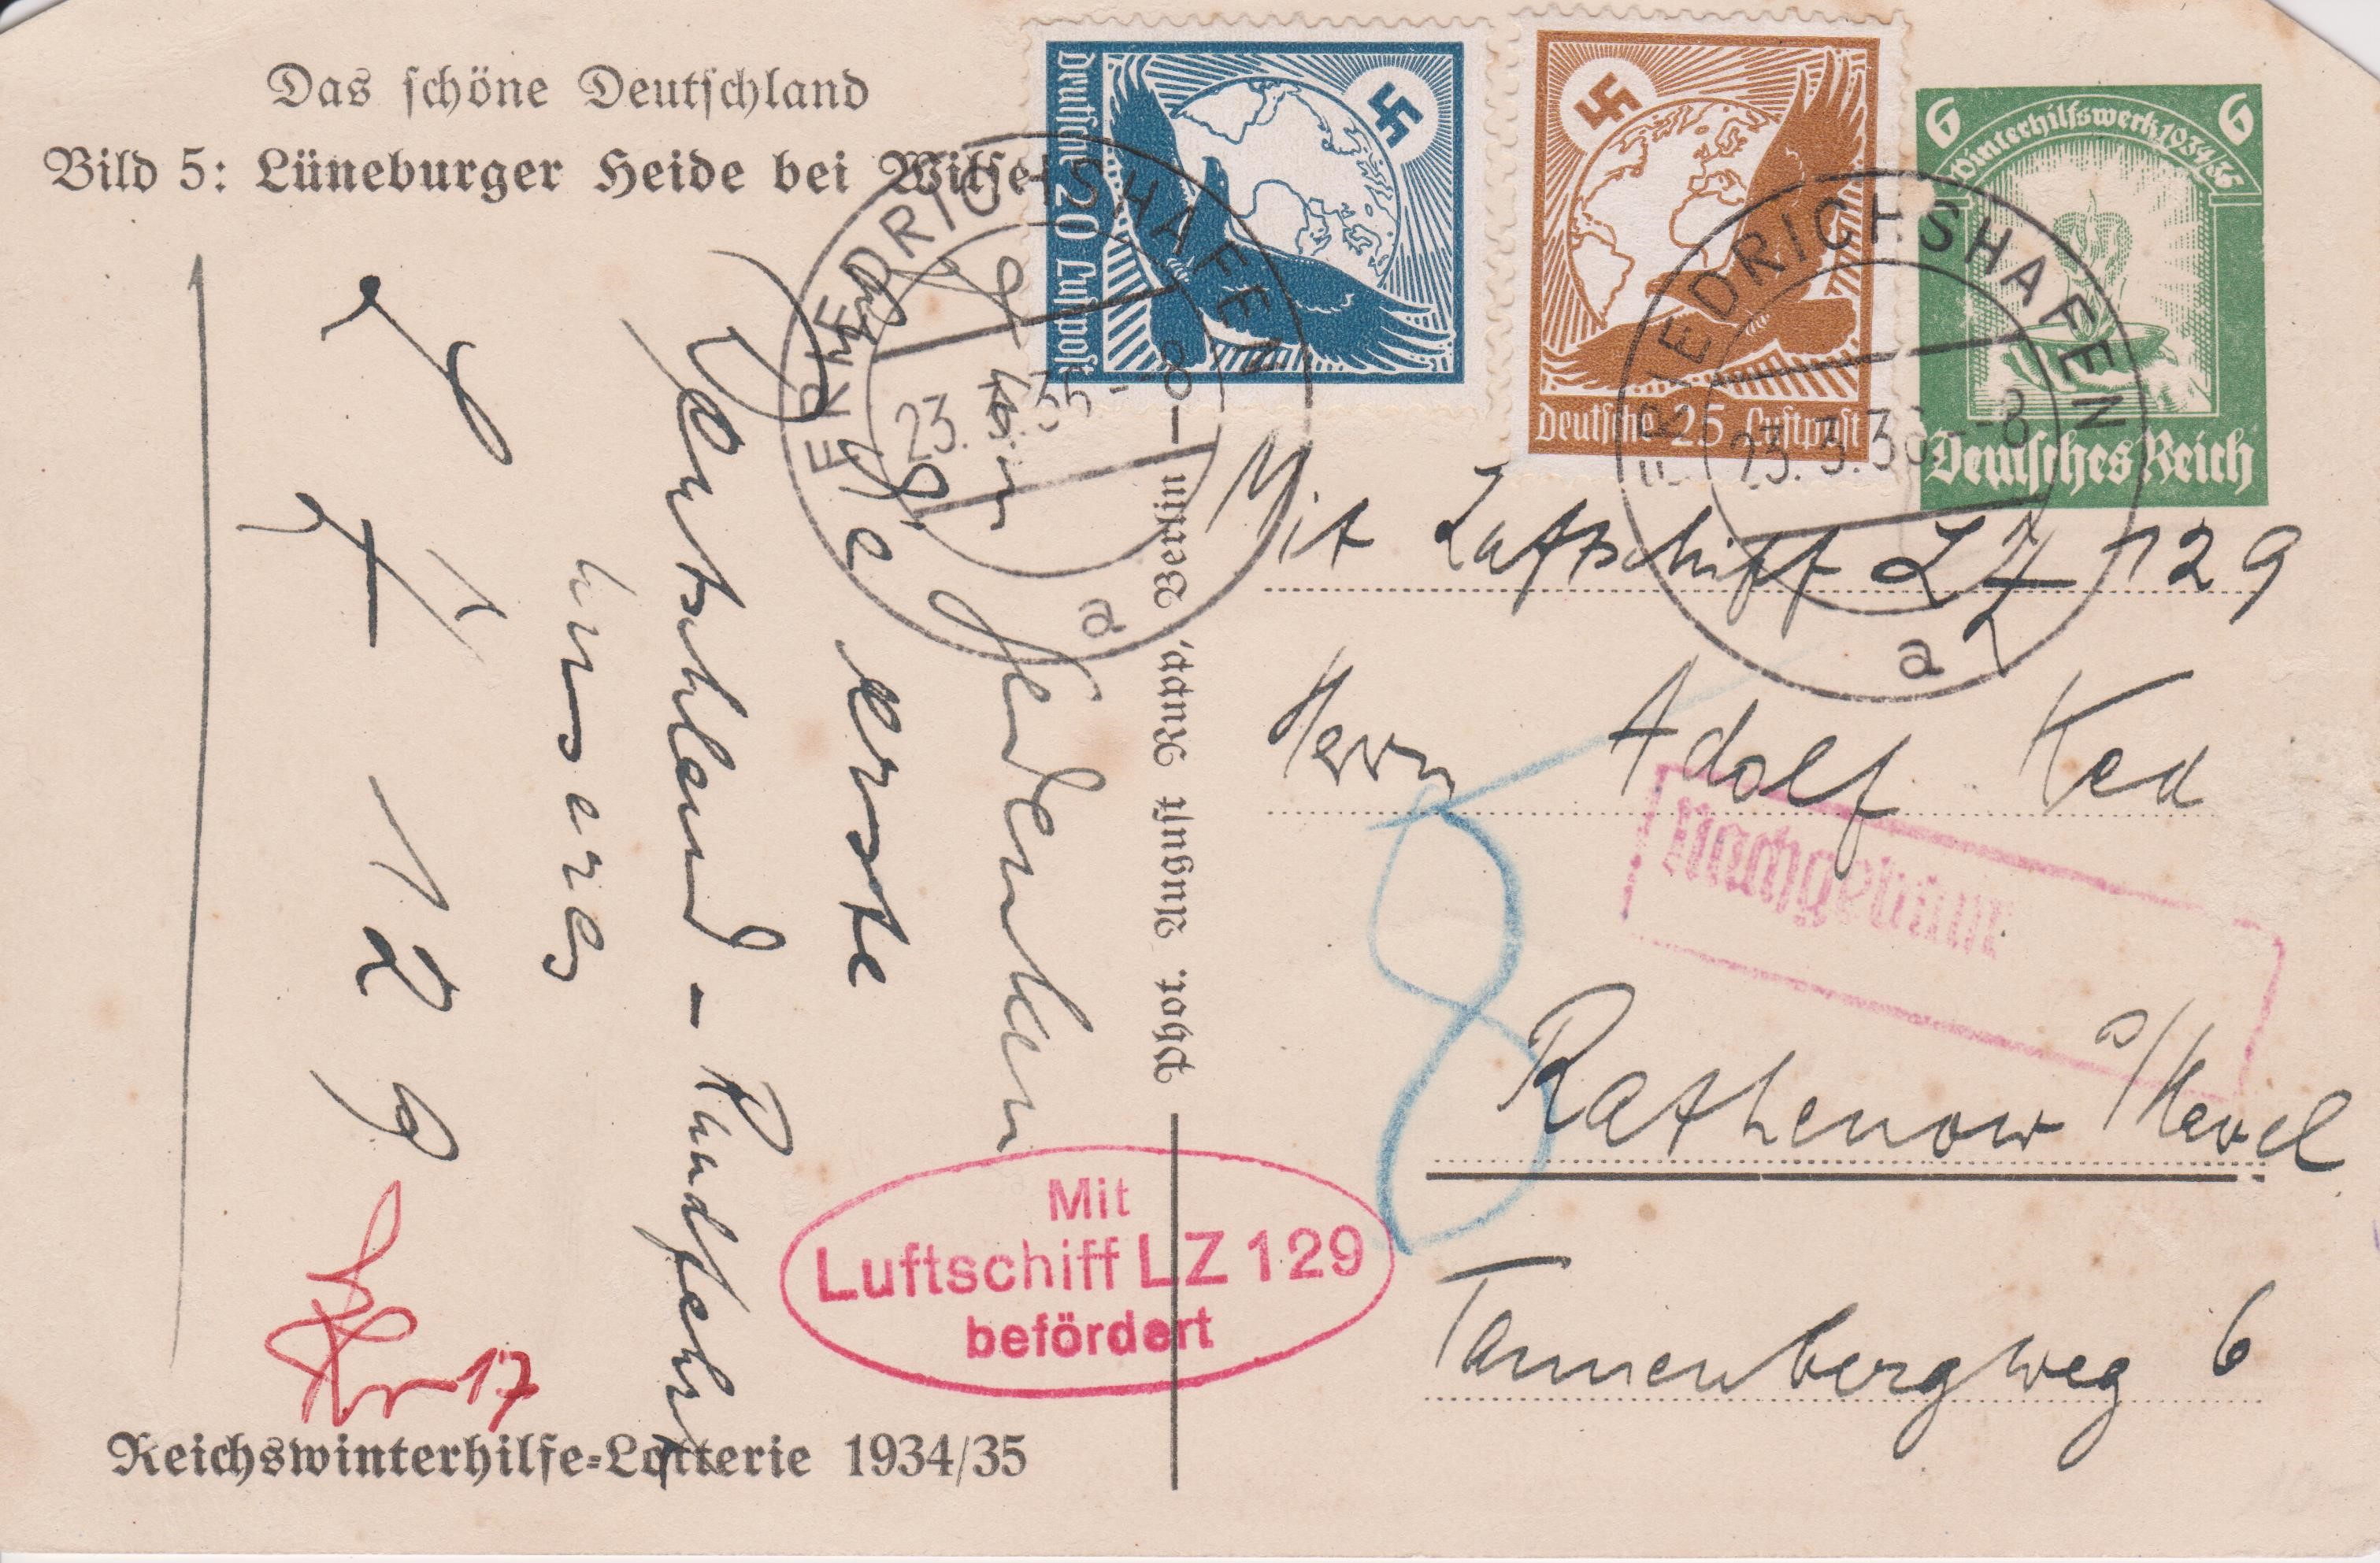 Das schöne Deutschland
Bild 5: Lüneburger Heide bei Wilse
Deutsche 20 Luftpost
Deutsche 25 Luftpost
6 Winterhilfswerk 1934/35 6
Deutsches Reich
FRIEDRICHSHAFEN
23.3.36.-8
a
FRIEDRICHSHAFEN
23.3.36-8
a
Mit Luftschiff LZ 129
Herrn Adolf
Rathenow a/Havel
Tannenbergweg 6
Nachgebühr
8
Wir
gedenken
erste
Deutschland-Rundfahrt
unseres
LZ 129
Phot. August Rupp, Berlin
Mit
Luftschiff LZ 129
befördert
17
Reichswinterhilfe-Lotterie 1934/35